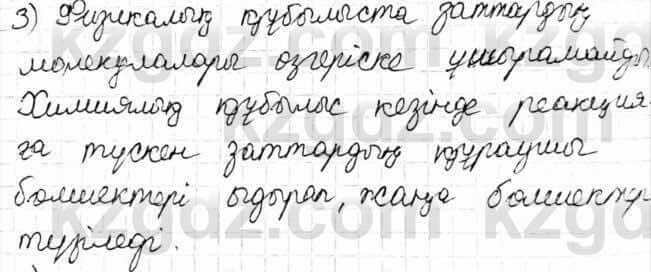 3) Физикалық құбылыста заттардың
молекулалары өзгеріске ұшырамайды.
Химиялық құбылыс кезінде реакция-
ға түскен заттардың құраушы
бөлшектері ыдырап, жаңа бөлшектер
түзіледі.
kzgdz.com